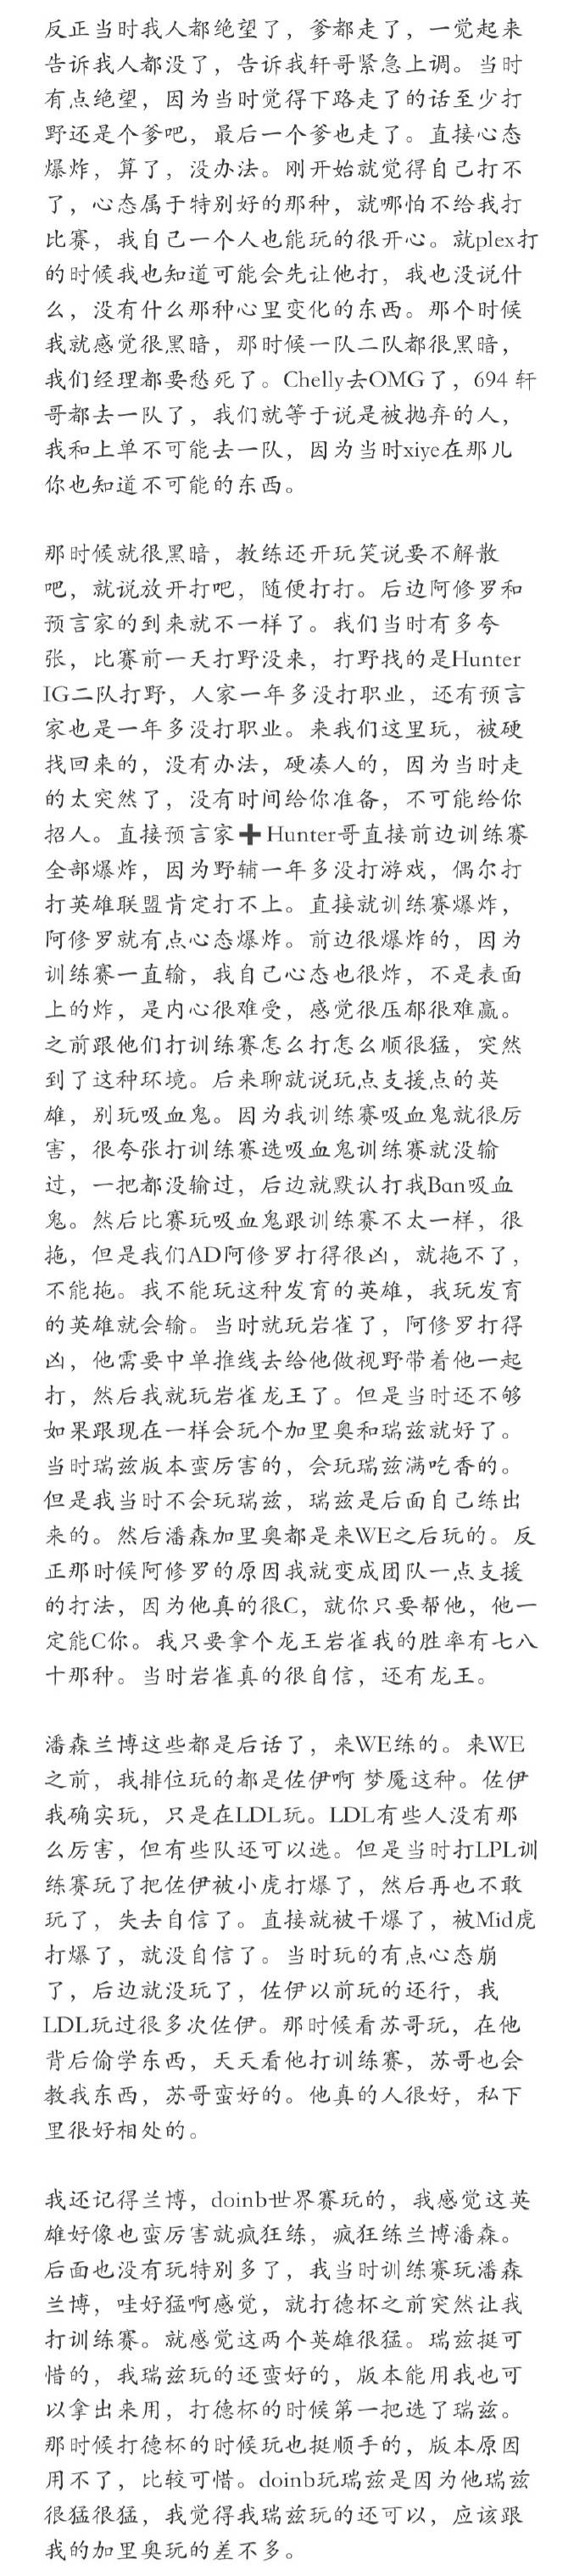 反正当时我人都绝望了，爹都走了，一觉起来
告诉我人都没了，告诉我轩哥紧急上调。当时
有点绝望，因为当时觉得下路走了的话至少打
野还是个爹吧，最后一个爹也走了。直接心态
爆炸，算了，没办法。刚开始就觉得自己打不
了，心态属于特别好的那种，就哪怕不给我打
比赛，我自己一个人也能玩的很开心。就plex打
的时候我也知道可能会先让他打，我也没说什
么，没有什么那种心里变化的东西。那个时候
我就感觉很黑暗，那时候一队二队都很黑暗，
我们经理都要愁死了。Chelly去OMG了，694 轩
哥都去一队了，我们就等于说是被抛弃的人，
我和上单不可能去一队，因为当时xiye在那儿
你也知道不可能的东西。

那时候就很黑暗，教练还开玩笑说要不解散
吧，就说放开打吧，随便打打。后边阿修罗和
预言家的到来就不一样了。我们当时有多夸
张，比赛前一天打野没来，打野找的是Hunter
IG二队打野，人家一年多没打职业，还有预言
家也是一年多没打职业。来我们这里玩，被硬
找回来的，没有办法，硬凑人的，因为当时走
的太突然了，没有时间给你准备，不可能给你
招人。直接预言家➕Hunter哥直接前边训练赛
全部爆炸，因为野辅一年多没打游戏，偶尔打
打英雄联盟肯定打不上。直接就训练赛爆炸，
阿修罗就有点心态爆炸。前边很爆炸的，因为
训练赛一直输，我自己心态也很炸，不是表面
上的炸，是内心很难受，感觉很压郁很难赢。
之前跟他们打训练赛怎么打怎么顺很猛，突然
到了这种环境。后来聊就说玩点支援点的英
雄，别玩吸血鬼。因为我训练赛吸血鬼就很厉
害，很夸张打训练赛选吸血鬼训练赛就没输
过，一把都没输过，后边就默认打我Ban吸血
鬼。然后比赛玩吸血鬼跟训练赛不太一样，很
拖，但是我们AD阿修罗打得很凶，就拖不了，
不能拖。我不能玩这种发育的英雄，我玩发育
的英雄就会输。当时就玩岩雀了，阿修罗打得
凶，他需要中单推线去给他做视野带着他一起
打，然后我就玩岩雀龙王了。但是当时还不够
如果跟现在一样会玩个加里奥和瑞兹就好了。
当时瑞兹版本蛮厉害的，会玩瑞兹满吃香的。
但是我当时不会玩瑞兹，瑞兹是后面自己练出
来的。然后潘森加里奥都是来WE之后玩的。反
正那时候阿修罗的原因我就变成团队一点支援
的打法，因为他真的很C，就你只要帮他，他一
定能C你。我只要拿个龙王岩雀我的胜率有七八
十那种。当时岩雀真的很自信，还有龙王。

潘森兰博这些都是后话了，来WE练的。来WE
之前，我排位玩的都是佐伊啊 梦魇这种。佐伊
我确实玩，只是在LDL玩。LDL有些人没有那
么厉害，但有些队还可以选。但是当时打LPL训
练赛玩了把佐伊被小虎打爆了，然后再也不敢
玩了，失去自信了。直接就被干爆了，被Mid虎
打爆了，就没自信了。当时玩的有点心态崩
了，后边就没玩了，佐伊以前玩的还行，我
LDL玩过很多次佐伊。那时候看苏哥玩，在他
背后偷学东西，天天看他打训练赛，苏哥也会
教我东西，苏哥蛮好的。他真的人很好，私下
里很好相处的。

我还记得兰博，doinb世界赛玩的，我感觉这英
雄好像也蛮厉害就疯狂练，疯狂练兰博潘森。
后面也没有玩特别多了，我当时训练赛玩潘森
兰博，哇好猛啊感觉，就打德杯之前突然让我
打训练赛。就感觉这两个英雄很猛。瑞兹挺可
惜的，我瑞兹玩的还蛮好的，版本能用我也可
以拿出来用，打德杯的时候第一把选了瑞兹。
那时候打德杯的时候玩也挺顺手的，版本原因
用不了，比较可惜。doinb玩瑞兹是因为他瑞兹
很猛很猛，我觉得我瑞兹玩的还可以，应该跟
我的加里奥玩的差不多。